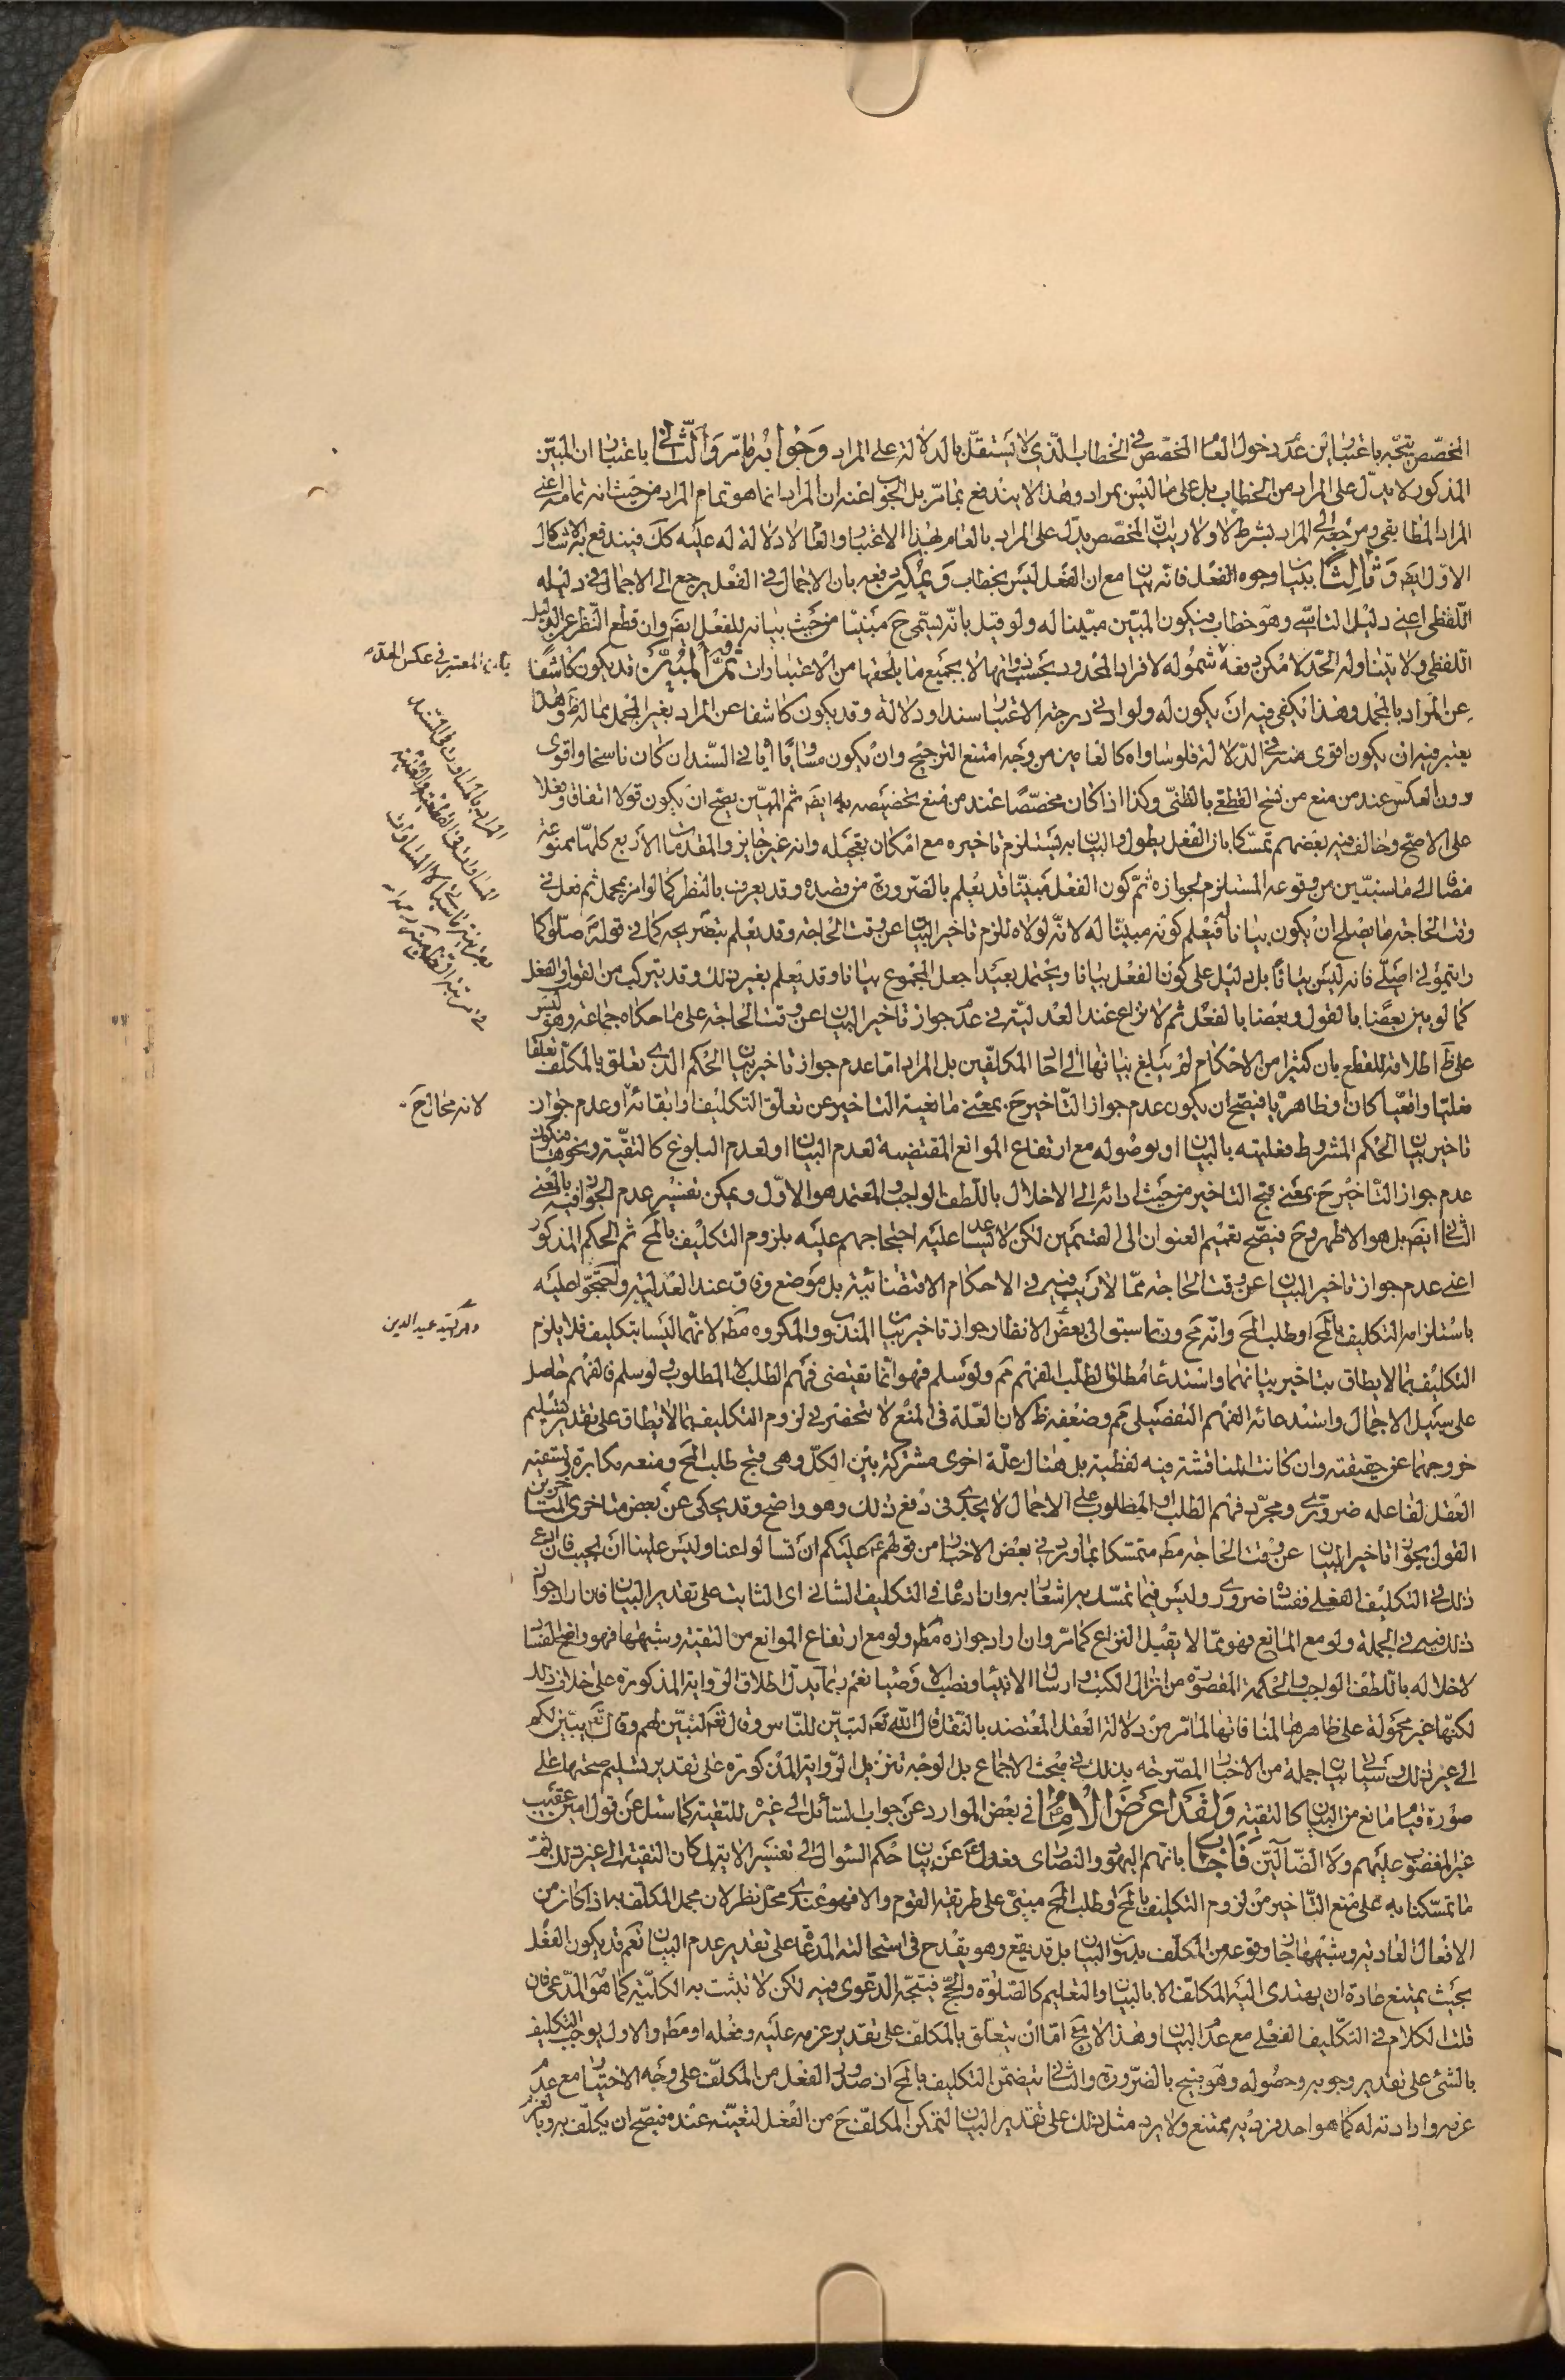 المخصّص يتّجه باعتبارين عدم دخول العام المخصّص في الخطاب الذي لا يستقلّ بالدلالة على المراد وجوابه ما مرّ والثاني باعتبار ان المبيّن
المذكور لا يدلّ على المراد من الخطاب بل على ما ليس بمراد وهذا لا يندفع بما مرّ بل الجواب عنه ان المراد انما هو تمام المراد من حيث انه تمامه اعنى
المراد المطابقي ومرجعه الى المراد بشرط لا ولا ريب انّ المخصّص يدلّ على المراد بالعام بهذا الاعتبار والعام لا دلالة له عليه كك فيندفع به الاشكال
الاوّل ايضا وثالثا ببيان وجوه الفعل فانّه بيان مع ان الفعل ليس بخطاب ويمكن دفعه بان الاجمال في الفعل يرجع الى الاجمال في دليله
اللّفظي اعنى دليل التاسّي وهو خطاب فيكون المبيّن مبيّنا له ولو قيل بانّه يسمّى ح مبيّنا من حيث بيانه للفعل ايضا وان قطع النظر عن الدليل
اللفظي ولا يتناوله الحدّ لامكن دفعه شموله لافراد المحدود بحسب ذواتها لا بجميع ما يلحقها من الاعتبارات ثمّ المبيّن قد يكون كاشفا
عن المراد بالمجمل وهذا يكفي فيه ان يكون له ولو ادنى درجة الاعتبار سندا ودلالة وقد يكون كاشفا عن المراد بغير المجمل مما له ظ وهذا
يعتبر فيه ان يكون اقوى منه في الدّلالة فلو ساواه كالعامين من وجه امتنع الترجيح وان يكون مساويا في السّند ان كان ناسخا واقوى
دون العكس عند من منع من نسخ القطعي بالظنّي وكذا اذا كان مخصّصا عند من منع تخصيصه به ايضا ثم المبيّن يصحّ ان يكون قولا اتفاقا وفعلا
على الاصحّ وخالف فيه بعضهم تمسّكا بان الفعل يطول والبيان به يستلزم تاخيره مع امكان تعجيله وانه غير جايز والمقدمات الاربع كلها ممنوعة
مضافا الى ما سنبيّن من وقوعه المستلزم لجوازه ثمّ كون الفعل مبيّنا قد يعلم بالضرورة من قصده وقد يعرف بالنظر كما لو امر بمجمل ثم فعل في
وقت الحاجة ما يصلح ان يكون بيانا له فيعلم كونه مبيّنا له لانه لولاه للزم تاخير البيان عن وقت الحاجة وقد يعلم بتصريحه كما في قوله صلّوا كما
رايتموني اصلّي فانه ليس بيانا بل دليل على كون الفعل بيانا ويحتمل بعيدا جعل المجموع بيانا وقد يعلم بغير ذلك وقد يتركب من القول والفعل
كما لو بين بعضا بالقول وبعضا بالفعل ثم لا نزاع عند العدلية في عدم جواز تاخير البيان عن وقت الحاجة على ما حكاه جماعة وهو ليس
على اطلاقه للقطع بان كثيرا من الاحكام لم يبلغ بيانها الى احاد المكلّفين بل المراد امّا عدم جواز تاخير بيان الحكم الذي تعلق بالمكلّف تعلقا
فعليّا واقعيّا كان او ظاهريّا فيصحّ ان يكون عدم جواز التّاخير ح بمعنى مانعية التاخير عن تعلّق التكليف او ابقائه او عدم جواز
تاخير بيان الحكم المشروط فعليته بالبيان او بوصوله مع ارتفاع الموانع المقتضية لعدم البيان او لعدم البلوغ كالتقيّة ونحوها فيكون
عدم جواز التّاخير ح بمعنى قبح التاخير من حيث ادائه الى الاخلال باللّطف الواجب والمعتمد هو الاوّل ويمكن تفسير عدم الجواز فيه بالمعنى
الثاني ايضا بل هو الاظهر وح فيصحّ تعميم العنوان الى القسمين لكن لا يساعد عليه احتجاجهم عليه بلزوم التكليف بالمح ثم الحكم المذكور
اعنى عدم جواز تاخير البيان عن وقت الحاجة ممّا لا ريب فيه في الاحكام الاقتضائية بل موضع وفاق عند العدلية واحتجّوا عليه
باستلزامه التكليف بالمح او طلب المح وانّه مح وربما سبق الى بعض الانظار جواز تاخير بيان المندوب والمكروه مط لانهما ليسا بتكليف فلا يلزم
التكليف بما لا يطاق بتاخير بيانهما واستدعاء مطلق الطلب الفهم مم ولو سلم فهو انّما يقتضى فهم الطلب لا المطلوب ولو سلم فالفهم حاصل
على سبيل الاجمال واستدعائه الفهم التفصيلي مم وضعفه ظ لان العلّة في المنع لا تنحصر في لزوم التكليف بما لا يطاق على تقدير تسليم
خروجهما عن حقيقته وان كانت المناقشة فيه لفظية بل هناك علّة اخرى مشتركة بين الكلّ وهي قبح طلب المح ومنعه مكابرة
العقل لفاعله ضرورى ومجرّد فهم الطلب او المطلوب على الاجمال لا يجدى في دفع ذلك وهو واضح وقد يحكى عن بعض متاخري المتاخرين
القول بجواز تاخير البيان عن وقت الحاجة مط متمسّكا بما ورد في بعض الاخبار من قولهم ع عليكم ان تسالوا عنا وليس علينا ان نجيب فان ادعى
ذلك في التكليف الفعلي ففساده ضرورى وليس فيما تمسّك به اشعار به وان ادعاه في التكليف الشاني اى الثابت على تقدير البيان فان اراد جواز
ذلك فيه في الجملة ولو مع المانع فهو ممّا لا يقبل النزاع كما مرّ وان اراد جوازه مط ولو مع ارتفاع الموانع من التقية وشبهها فهو واضح الفساد
لاخلاله باللّطف الواجب والحكمة المقصودة من انزال الكتب وارسال الانبياء ونصب الاوصياء نعم ربما يدلّ اطلاق الرّواية المذكورة على خلاف ذلك
لكنّها غير محمولة على ظاهرها لمنافاتها لما مرّ من دلالة العقل المعتضد بالنّقل قال اللّه تعالى لتبيّن للنّاس وقال تعالى ليبيّن لهم وقال تعالى يبيّن لكم
الى غير ذلك وسياتي بيان جملة من الاخبار المصرّحة بذلك في مبحث الاجماع بل الوجه تنزيل الرّواية المذكورة على تقدير تسليم صحتها على
صورة قيام مانع من البيان كالتقية ولقد اعرض الامام في بعض الموارد عن جواب السّائل الى غيره للتقية كما سئل عن قول امين عقيب
غير المغضوب عليهم ولا الضّالين فاجاب بانهم اليهود والنصارى فعدل ع عن بيان حكم السّؤال الى تفسير الاية لمكان التقية الى غير ذلك ثمّ
ما تمسّكنا به على منع التّاخير من لزوم التكليف بالمح او طلب المح مبنيّ على طريقة القوم والا فهو عندى محلّ نظر لان مجمل المكلّف به اذا كان من
الافعال العادية وشبهها جاز وقوعه من المكلّف بدون البيان بل قد يقع وهو يقدح في استحالة المدّعاة على تقدير عدم البيان نعم قد يكون الفعل
بحيث يمتنع عادة ان يهتدى اليه المكلّف الا بالبيان والتعليم كالصلوة والحجّ فيتّجه الدّعوى فيه لكن لا تثبت به الكلّية كما هو المدّعى فان
قلت الكلام في التكليف الفعلي مع عدم البيان وهذا لا يخ امّا ان يتعلّق بالمكلّف على تقدير عزمه عليه وفعله او مط والاول يوجب التكليف
بالشئ على تقدير وجوبه وحصوله وهو قبيح بالضّرورة والثاني يتضمّن التكليف بالمح اذ صدور الفعل من المكلّف على وجه الاختيار مع عدم
عزمه وارادته له كما هو احد فرديه ممتنع ولا يرد مثل ذلك على تقدير البيان لتمكن المكلّف ح من الفعل لتعيّنه عنده فيصّح ان يكلّف به وبالعزم
لانه محال ح
وهو السيد عميد الدين